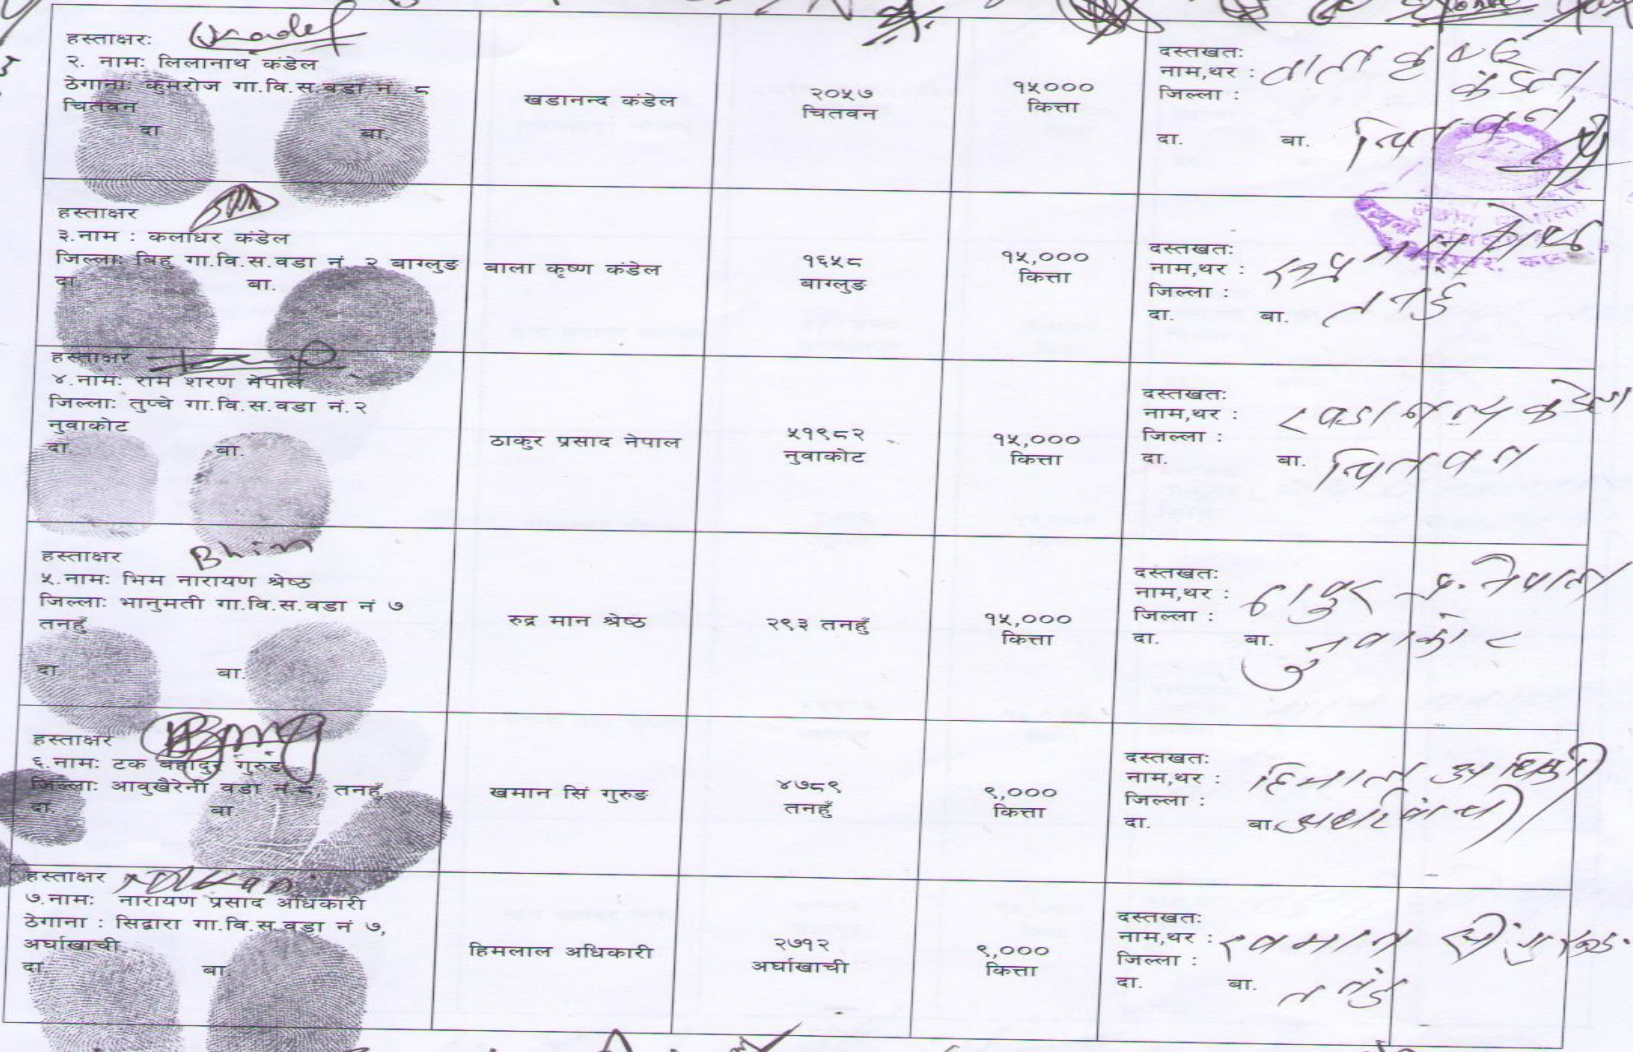 हस्ताक्षरः
२. नामः लिलानाथ कंडेल
ठेगानाः कुमरोज गा.वि.स.वडा नं. ८
चितवन
दा बा.
खडानन्द कंडेल
२०५७
चितवन
१५०००
कित्ता
दस्तखतः
नाम,थर :
कंडेल
जिल्ला :
दा. बा. चितवन
हस्ताक्षर
३.नाम : कलाधर कंडेल
जिल्लाः बिहु गा.वि.स.वडा नं. २ बाग्लुङ
दा. बा.
बाला कृष्ण कंडेल
१६५८
बाग्लुङ
१५,०००
कित्ता
दस्तखतः
नाम,थर : रुद्र मान श्रेष्ठ
जिल्ला :
दा. बा. तनहुँ
हस्ताक्षर
४.नामः राम शरण नेपाल
जिल्लाः तुप्चे गा.वि.स.वडा नं.२
नुवाकोट
दा. बा.
ठाकुर प्रसाद नेपाल
५१९८२
नुवाकोट
१५,०००
कित्ता
दस्तखतः
नाम,थर : खडानन्द कंडेल
जिल्ला :
दा. बा. चितवन
हस्ताक्षर Bhim
५.नामः भिम नारायण श्रेष्ठ
जिल्लाः भानुमती गा.वि.स.वडा नं ७
तनहुँ
दा. बा.
रुद्र मान श्रेष्ठ
२९३ तनहुँ
१५,०००
कित्ता
दस्तखतः
नाम,थर : ठाकुर प्र. नेपाल
जिल्ला :
दा. बा. नुवाकोट
हस्ताक्षर
६.नामः टक बहादुर गुरुङ
जिल्लाः आवुखैरेनी वडा नं.८, तनहुँ
दा. बा.
खमान सिं गुरुङ
४७८९
तनहुँ
९,०००
कित्ता
दस्तखतः
नाम,थर : हिमलाल अधिकारी
जिल्ला :
दा. बा. अर्घाखांची
हस्ताक्षर
७.नामः नारायण प्रसाद अधिकारी
ठेगाना : सिद्वारा गा.वि.स.वडा नं ७,
अर्घाखाची
दा. बा.
हिमलाल अधिकारी
२७१२
अर्घाखाची
९,०००
कित्ता
दस्तखतः
नाम,थर : खमान सिं गुरुङ
जिल्ला :
दा. बा. तनहुँ